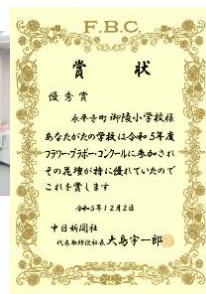 F.B.C.
賞状
優秀賞
永平寺町 御陵小学校様
あなたがたの学校は令和5年度
フラワー・ブラボー・コンクールに参加され
その花壇が特に優れていたので
これを賞します
令和5年12月2日
中日新聞社
代表取締役社長 大島宇一郎